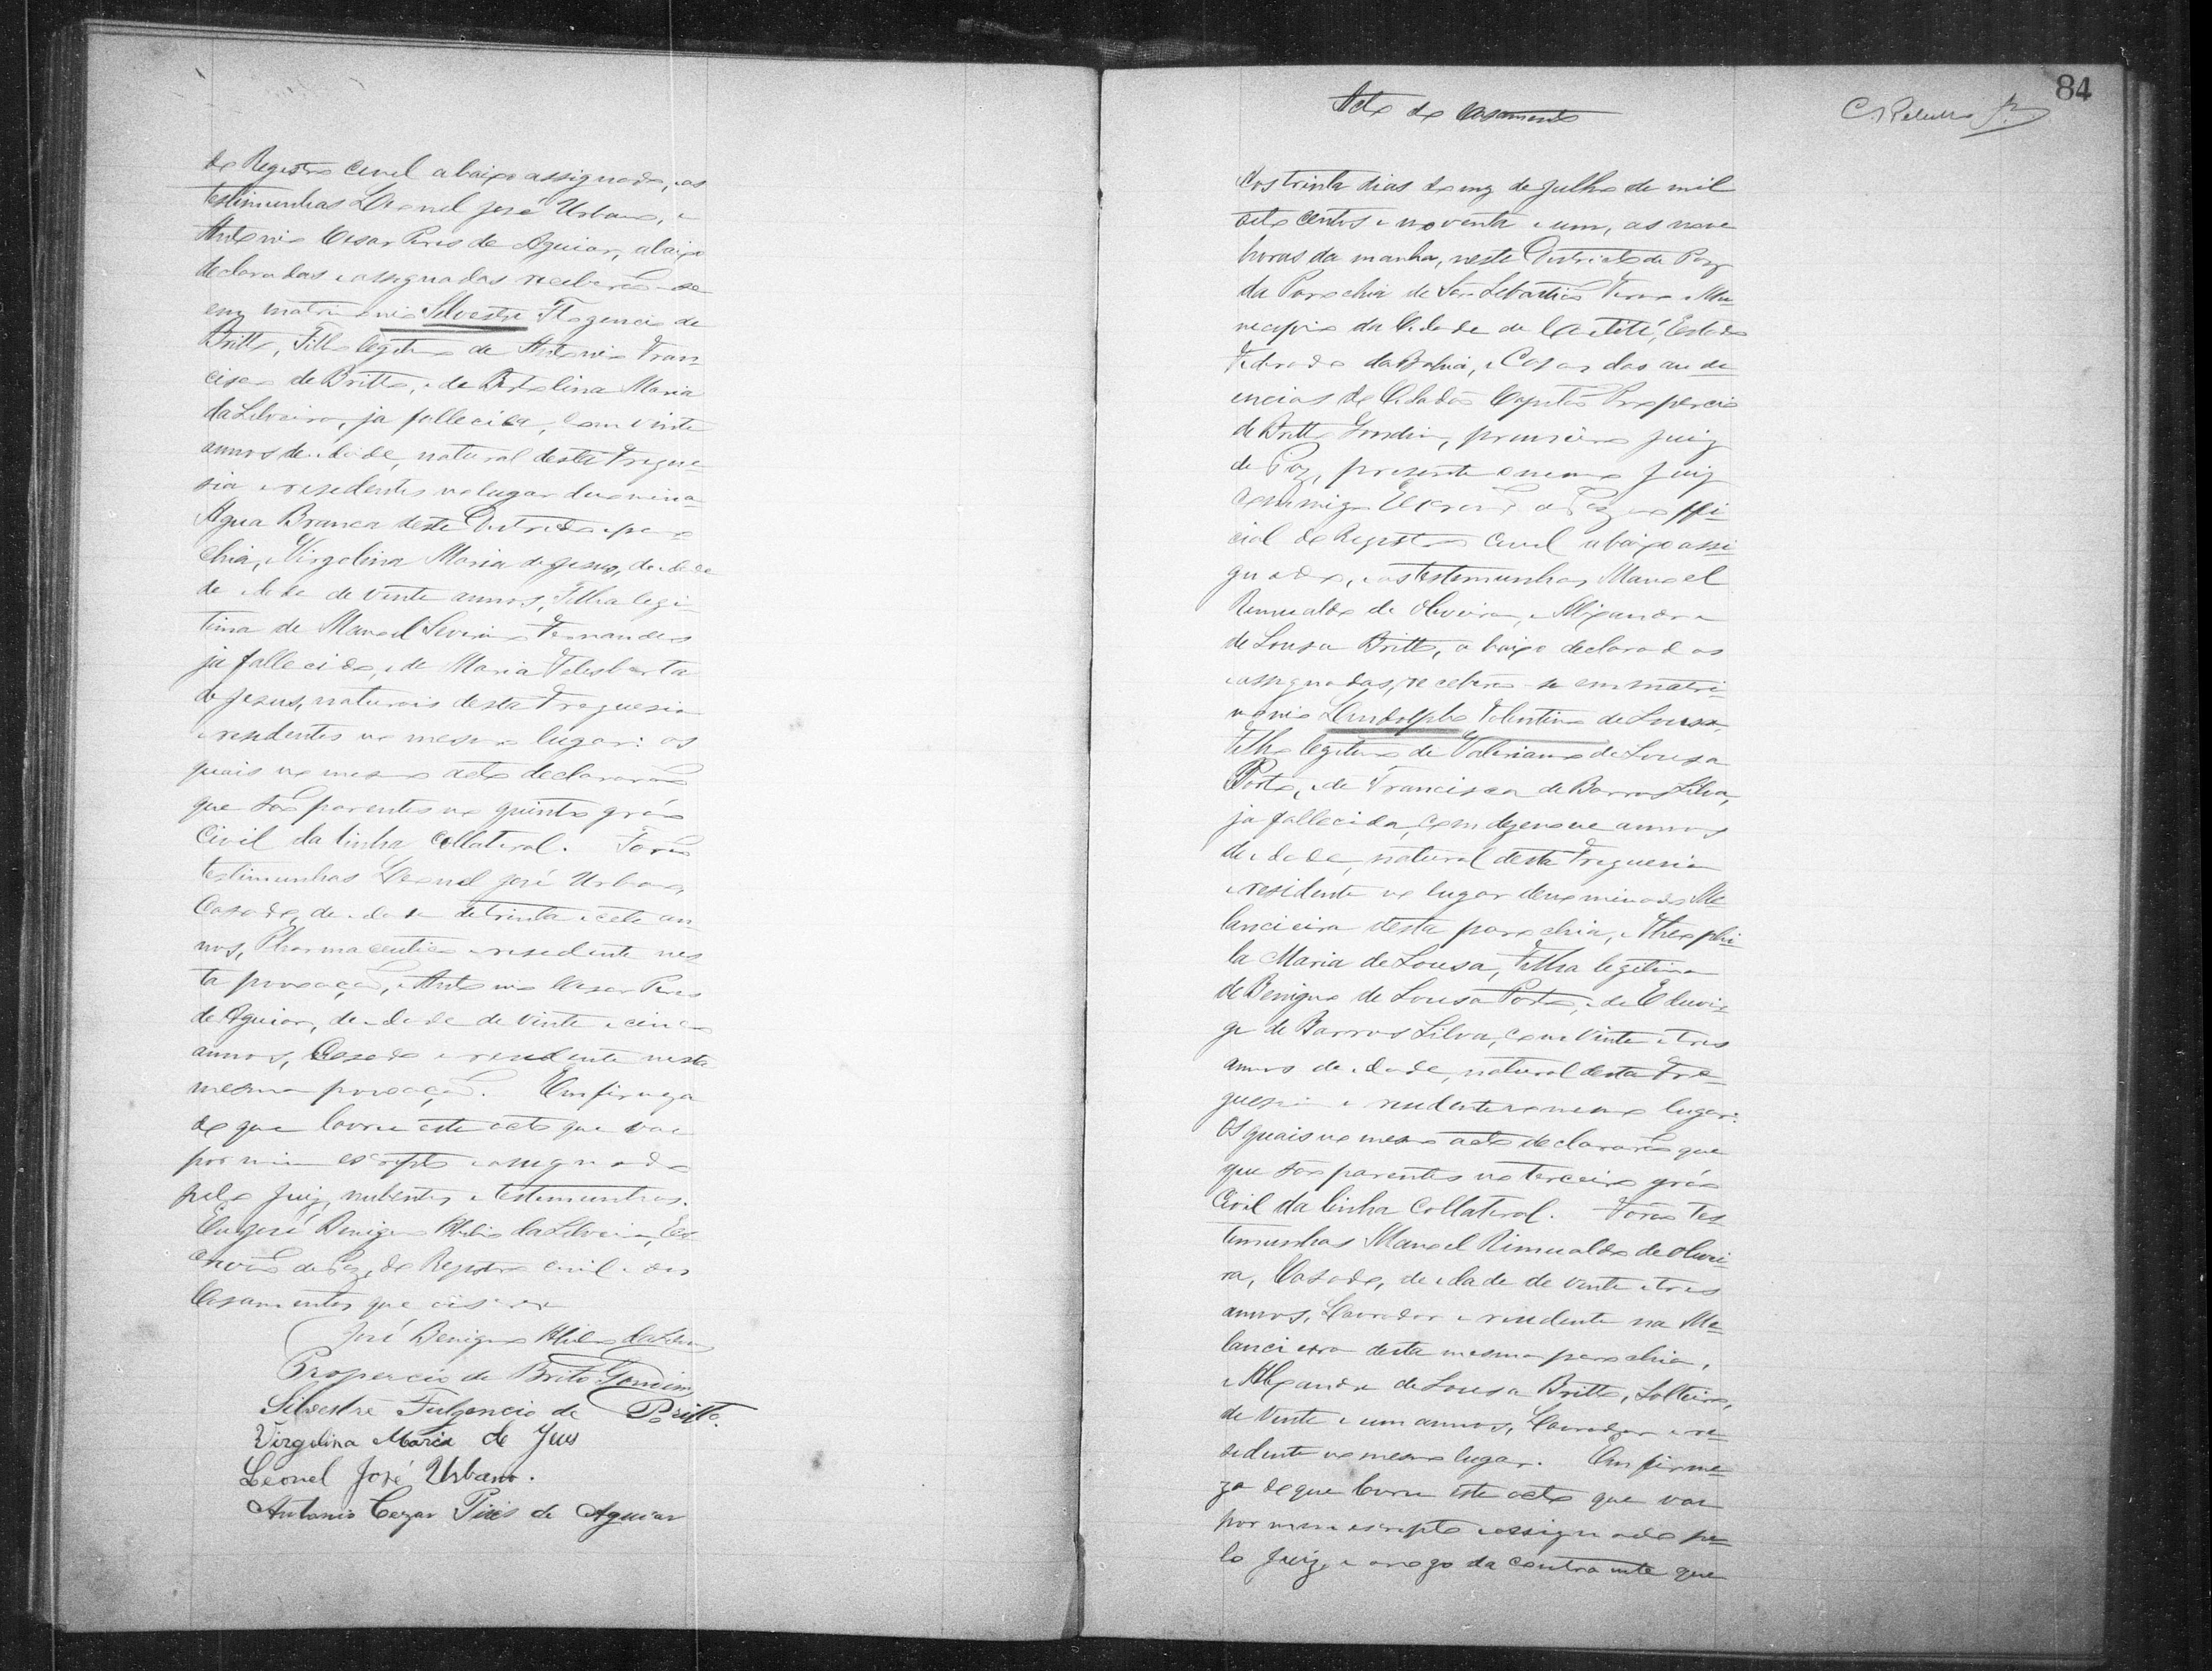 do Registro Civil abaixo assignado, e as
testimunhas Leonel José Urbano, e
Antonio Cesar Pires de Aguiar, abaixo
declaradas e assignadas receberão-se
em matrimonio Silvestre Flogencio de
Britto, Filho legitimo de Antonio Fran-
cisco de Britto, e de Bertolina Maria
da Silveira, ja fallecida, com vinte
annos de idade, natural desta Fregue-
sia e residentes no lugar denomina-
Agua Branca deste Districto e paro-
chia, e Virgolina Maria de Jesus, de idade
de idade de vinte annos, Filha legi-
tima de Manoel Severino Fernandes
ja fallecido, e de Maria Telesberta
de Jesus, naturais desta Freguesia
e residentes no mesmo lugar: os
quais no mesmo acto declararão
que são parentes no quinto gráo
Civil da linha Collateral. Forão
testimunhas Leonel José Urbano,
Casado, de idade de trinta e sete an-
nos, Pharmaceutico e residente nes-
ta povoação, e Antonio Cesar Pires
de Aguiar, de idade de vinte e cinco
annos, Casado e residente nesta
mesma povoação. Em firmeza
do que lavrei este acto que vae
por mim escripto e assignado
pelo Juiz, nubentes e testemunhas.
Eu José Benigno da Silveira, Es-
crivão de Paz, do Registro Civil e dos
Casamentos que escrevi
José Benigno
Propercio de Brito Gondim
Silvestre Fulgencio de Britto.
Virgilina Maria de Jesus
Leonel José Urbano.
Antonio Cezar Pires de Aguiar
84
Acto de Casamento
Aos trinta dias do mez de Julho de mil
oito centos e noventa e um, as nove
horas da manha, neste Districto de Paz
da Parochia de São Sebastião Termo e Mu-
nicipio da Cidade de Caetité, Estado
Federado da Bahia, e Casas das audi-
encias do Cidadão Capitão Propercio
de Britto Gondim, primeiro Juiz
de Paz, presente o mesmo Juiz
Commigo Escrivão de Paz e offi-
cial do Registro Civil abaixo assi-
gnado, e as testemunhas Manoel
Rumualdo de Oliveira, e Alixandre
de Sousa Britto, abaixo declaradas
e assignadas, receberão-se em matri-
monio Lindolpho Valentino de Sousa,
Filho legitimo de Valeriano de Sousa
Porto, e de Francisca de Barros Silva,
ja fallecida, com dezenove annos
de idade, natural desta Freguesia
e residente no lugar denominado Me-
lancieira desta parochia, e Theophi-
la Maria de Sousa, Filha legitima
de Benigno de Sousa Porto, e de Eduvi-
ge de Barros Silva, com vinte e tres
annos de idade, natural desta Fre-
guesia e residente no mesmo lugar:
Os quais no mesmo acto declararão que
que são parentes no terceiro gráo
Civil da linha Collateral. Forão tes-
temunhas Manoel Rimualdo de Olivei-
ra, Casado, de idade de vinte e tres
annos, Lavrador e residente na Me-
lancieira desta mesma parochia,
e Alixandre de Sousa Britto, Solteiro,
de vinte e um annos, Lavrador e re-
sidente no mesmo lugar. Em firme-
za do que lavrei este acto que vae
por mim escripto e assignado pe-
lo Juiz e a rogo da contraente que